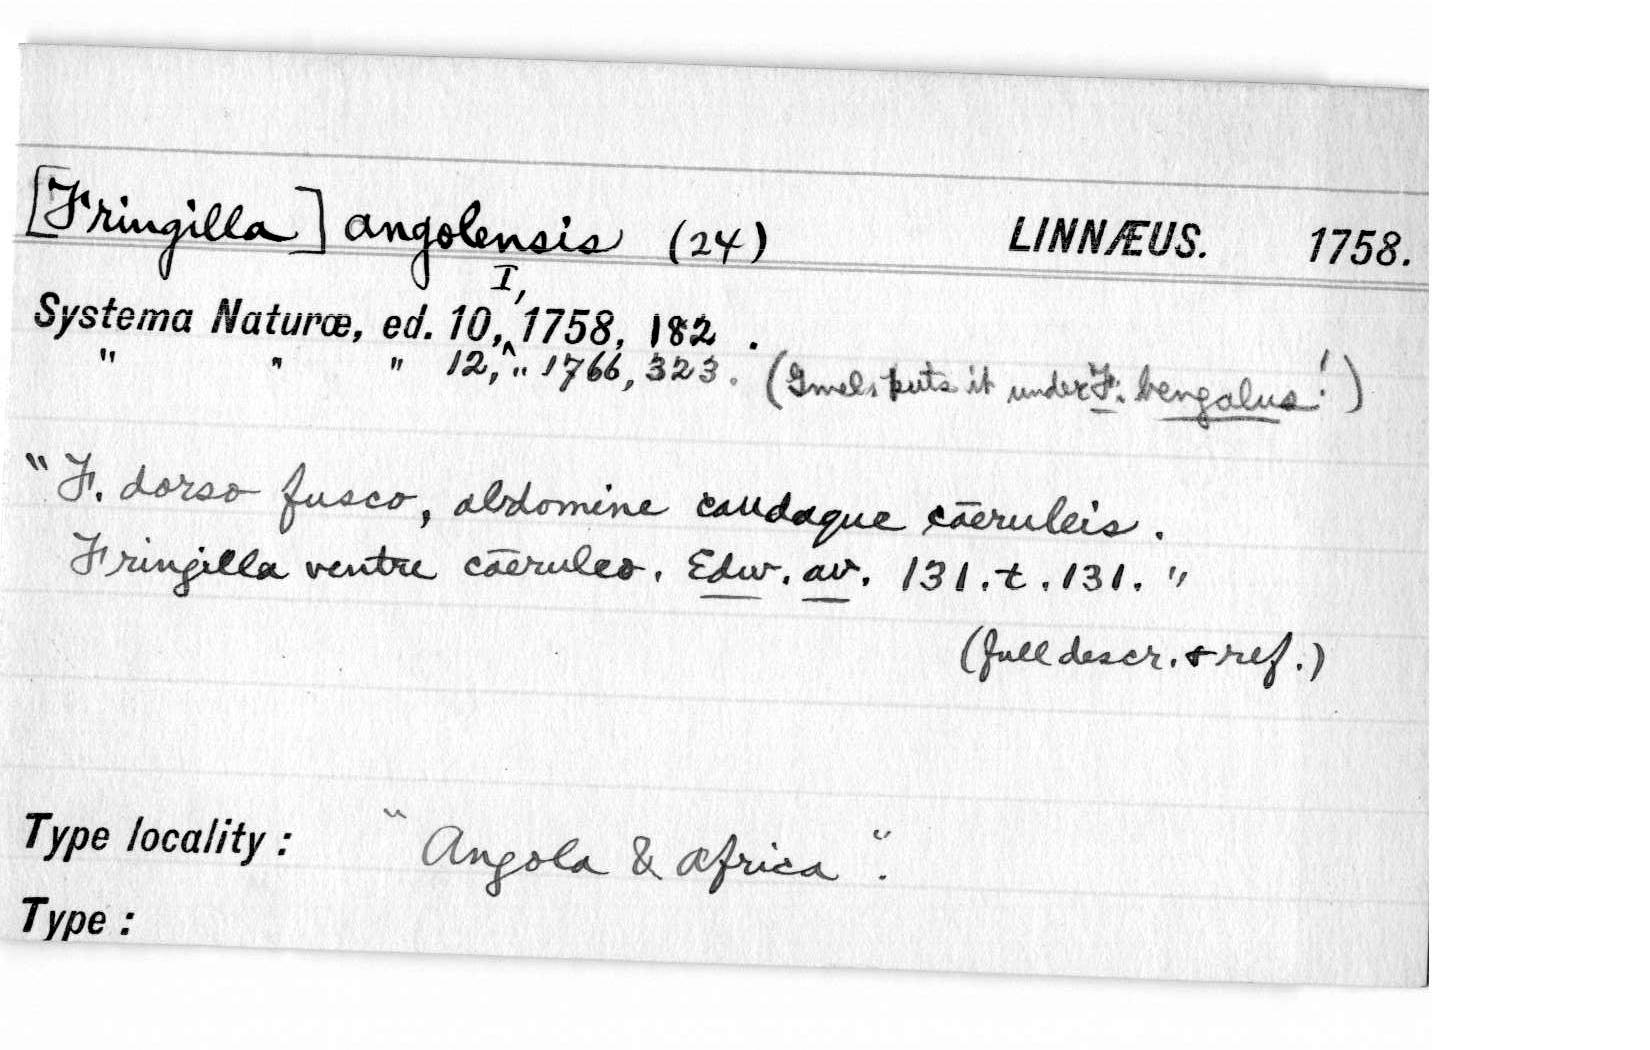 [Fringilla] angolensis (24) LINNÆUS. 1758.
Systema Naturæ, ed. 10, I, 1758, 182 .
" " " 12, " 1766, 323. (Gmel. puts it under F. bengalus!)
"F. dorso fusco, abdomine caudaque cāeruleis.
Fringilla ventre cāeruleo. Edw. av. 131. t. 131."
(full descr. & ref.)
Type locality : "Angola & Africa".
Type :